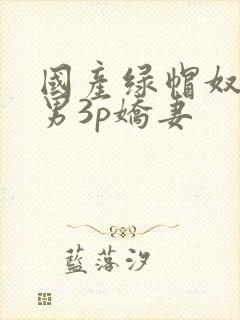 國產绿帽奴
男3p嬌妻
藍落汐